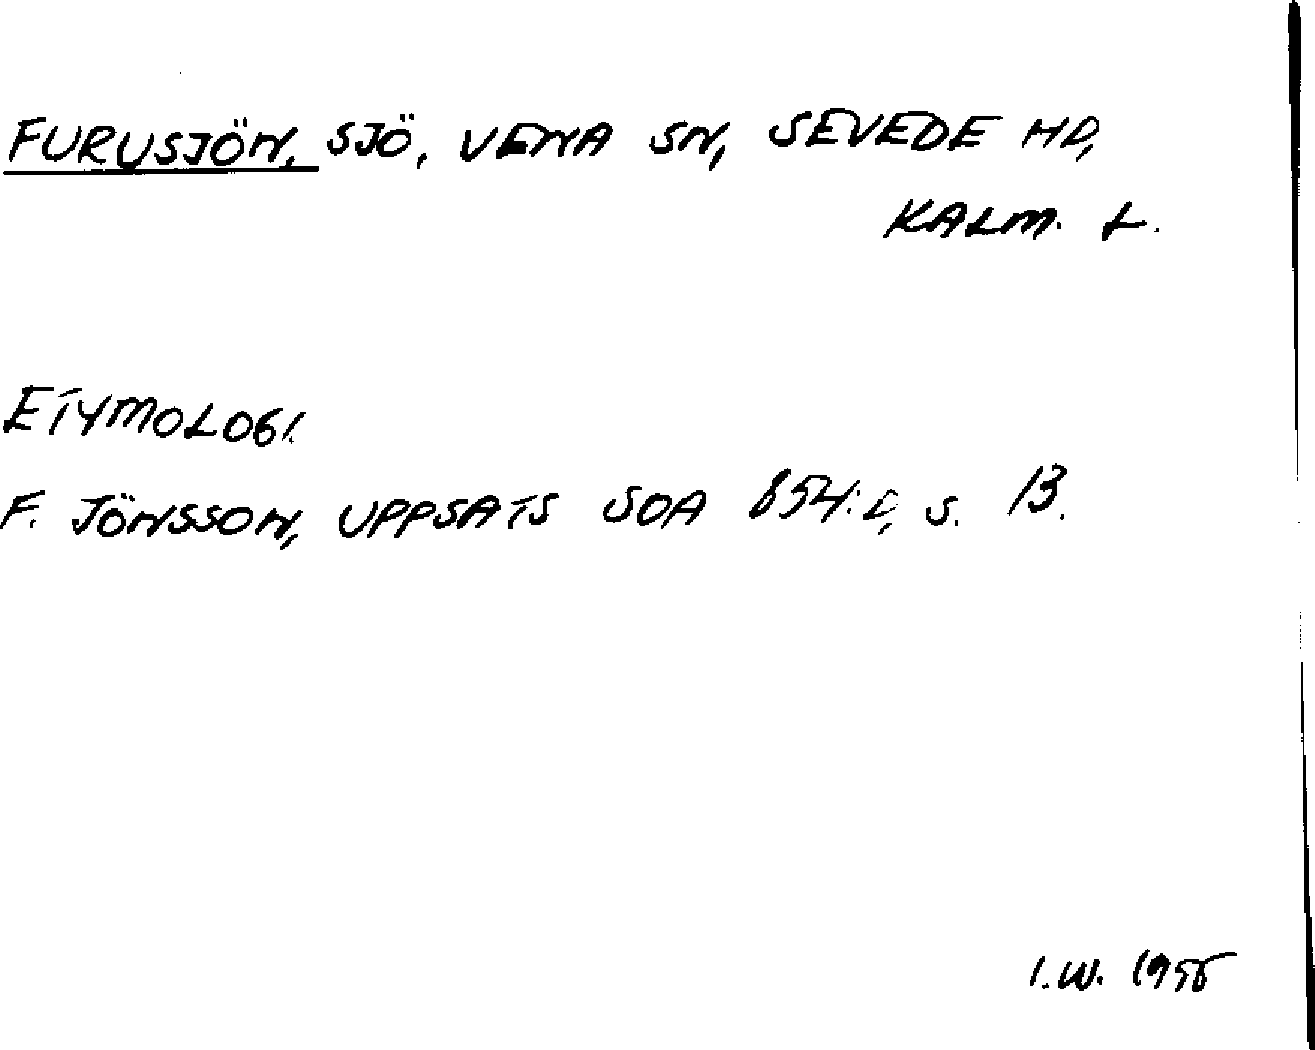 FURUSJÖN, SJÖ, VENA SN, SEVEDE HD,
KALM. L.
ETYMOLOGI.
F. JÖNSSON, UPPSATS SOA 854:D, s. 13.
I.W. 1955